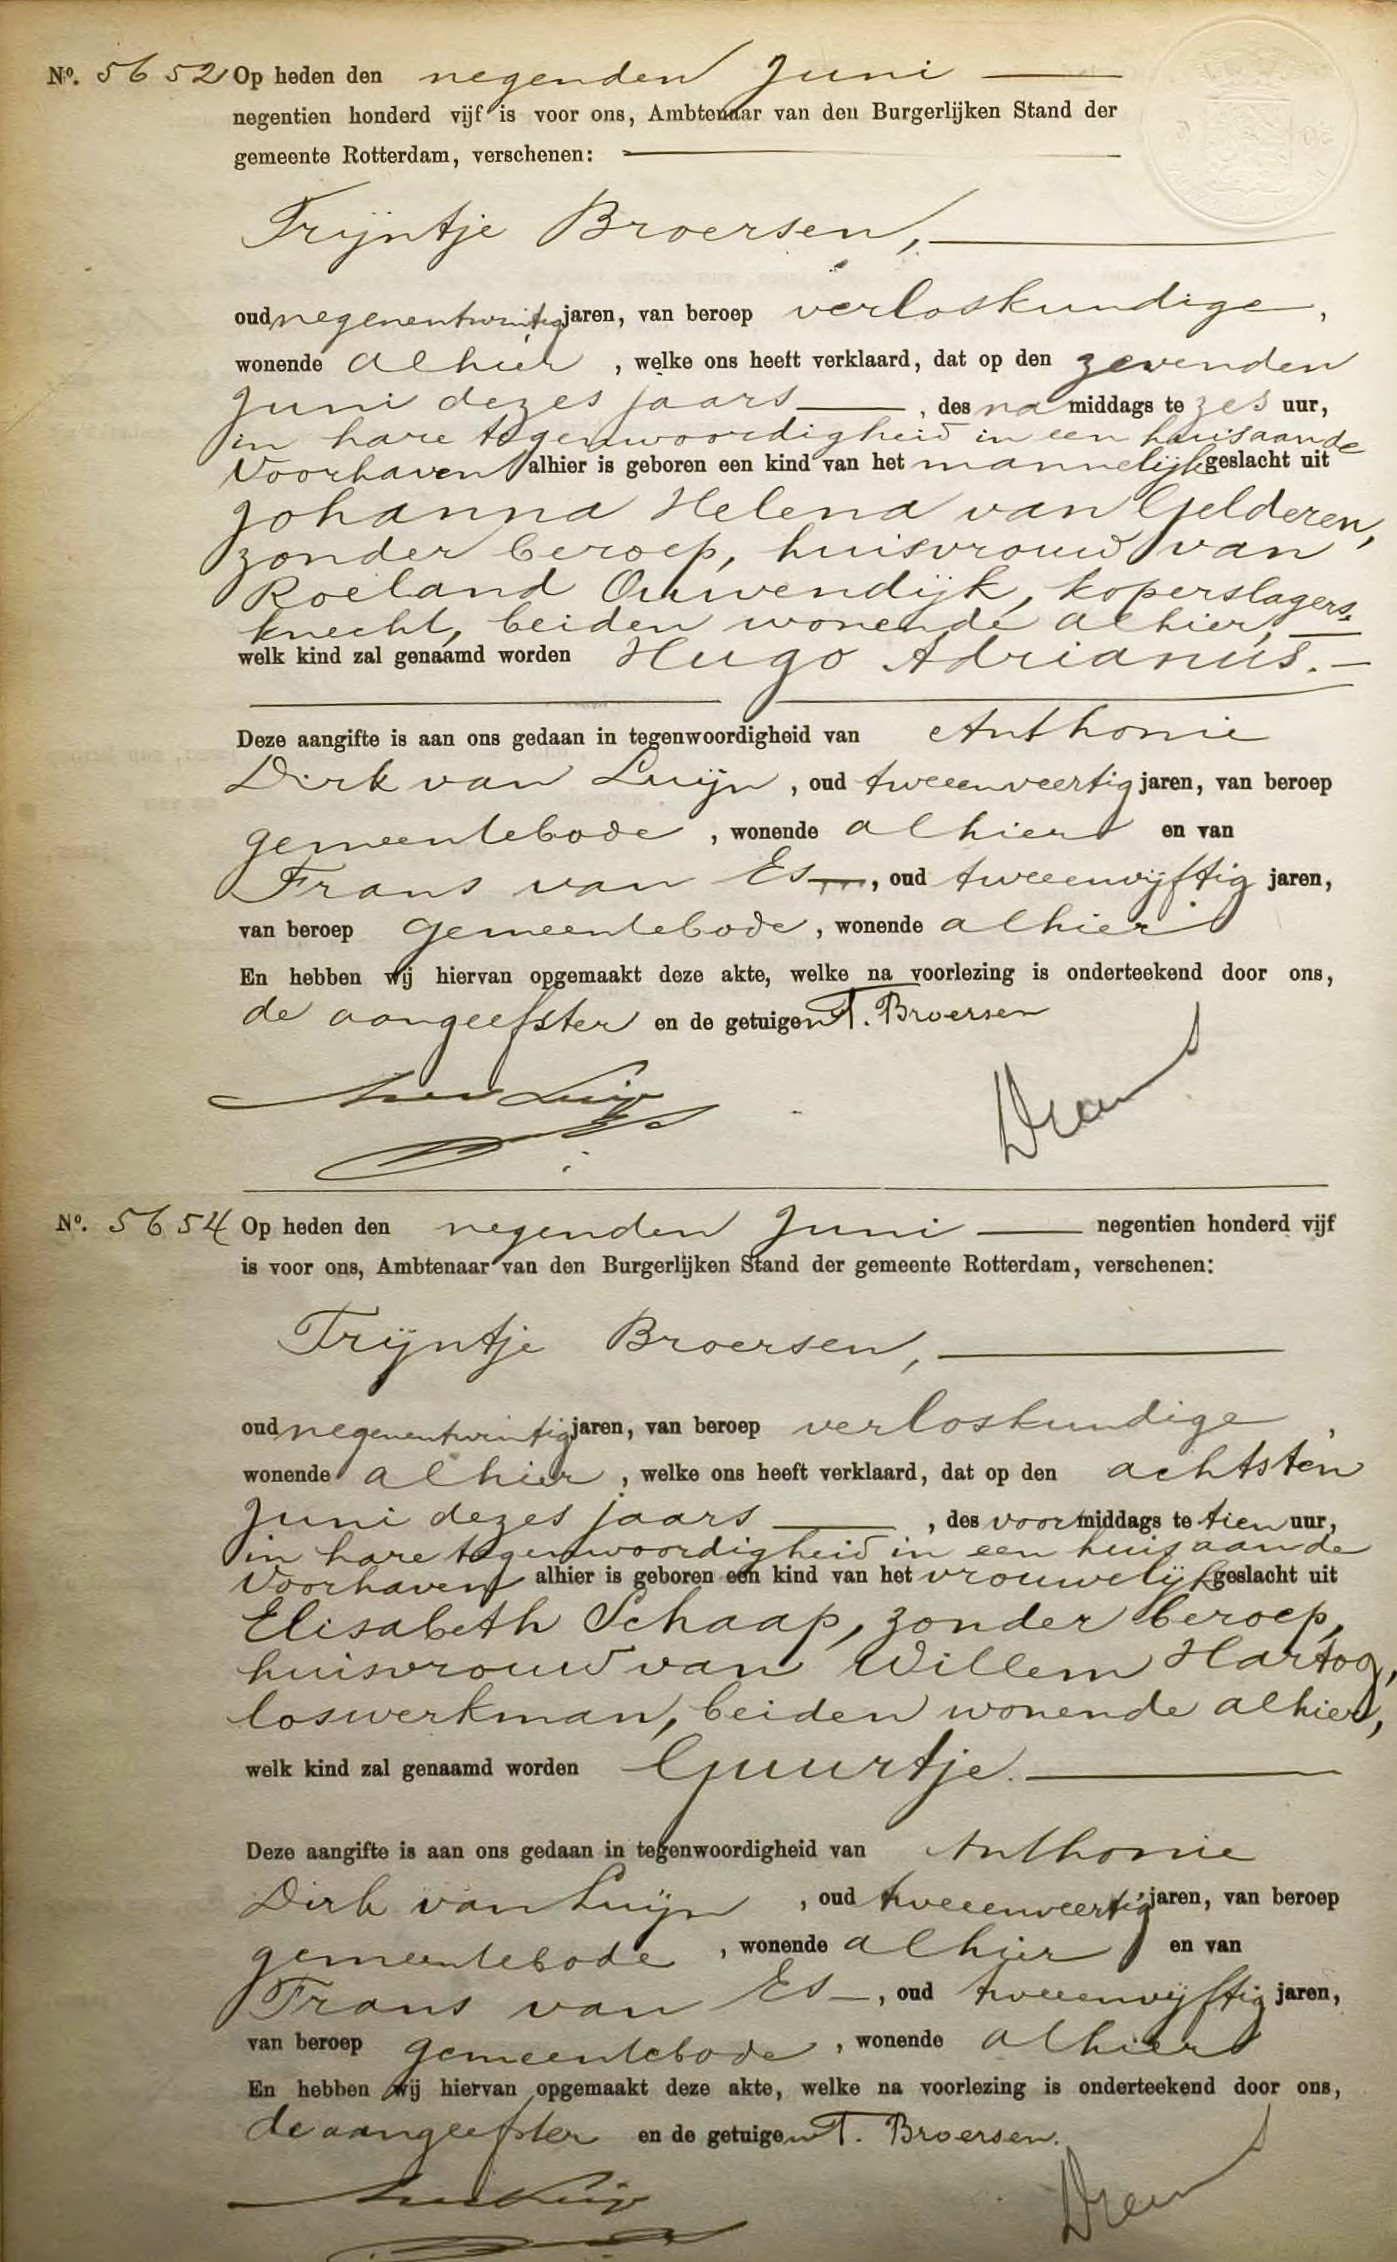 No. 5652 Op heden den negenden Juni
negentien honderd vijf is voor ons, Ambtenaar van den Burgerlijken Stand der
gemeente Rotterdam, verschenen:
Trijntje Broersen,
oud negenentwintig jaren, van beroep verloskundige,
wonende alhier, welke ons heeft verklaard, dat op den zevenden
Juni dezes jaars, des namiddags te zes uur,
in hare tegenwoordigheid in een huis aan de
Voorhaven alhier is geboren een kind van het mannelijk geslacht uit
Johanna Helena van Gelderen,
zonder beroep, huisvrouw van
Roeland Ouwendijk, koperslagers-
knecht, beiden wonende alhier,
welk kind zal genaamd worden Hugo Adrianus.
Deze aangifte is aan ons gedaan in tegenwoordigheid van Anthonie
Dirk van Luijn, oud tweeenveertig jaren, van beroep
gemeentebode, wonende alhier en van
Frans van Es, oud tweeenvijftig jaren,
van beroep gemeentebode, wonende alhier
En hebben wij hiervan opgemaakt deze akte, welke na voorlezing is onderteekend door ons,
de aangeefster en de getuigen T. Broersen
No. 5654 Op heden den negenden Juni negentien honderd vijf
is voor ons, Ambtenaar van den Burgerlijken Stand der gemeente Rotterdam, verschenen:
Trijntje Broersen,
oud negenentwintig jaren, van beroep verloskundige,
wonende alhier, welke ons heeft verklaard, dat op den achtsten
Juni dezes jaars, des voormiddags te tien uur,
in hare tegenwoordigheid in een huis aan de
Voorhaven alhier is geboren een kind van het vrouwelijk geslacht uit
Elisabeth Schaap, zonder beroep,
huisvrouw van Willem Hartog,
loswerkman, beiden wonende alhier,
welk kind zal genaamd worden Guurtje.
Deze aangifte is aan ons gedaan in tegenwoordigheid van Anthonie
Dirk van Luijn, oud tweeenveertig jaren, van beroep
gemeentebode, wonende alhier en van
Frans van Es, oud tweeenvijftig jaren,
van beroep gemeentebode, wonende alhier
En hebben wij hiervan opgemaakt deze akte, welke na voorlezing is onderteekend door ons,
de aangeefster en de getuigen T. Broersen.